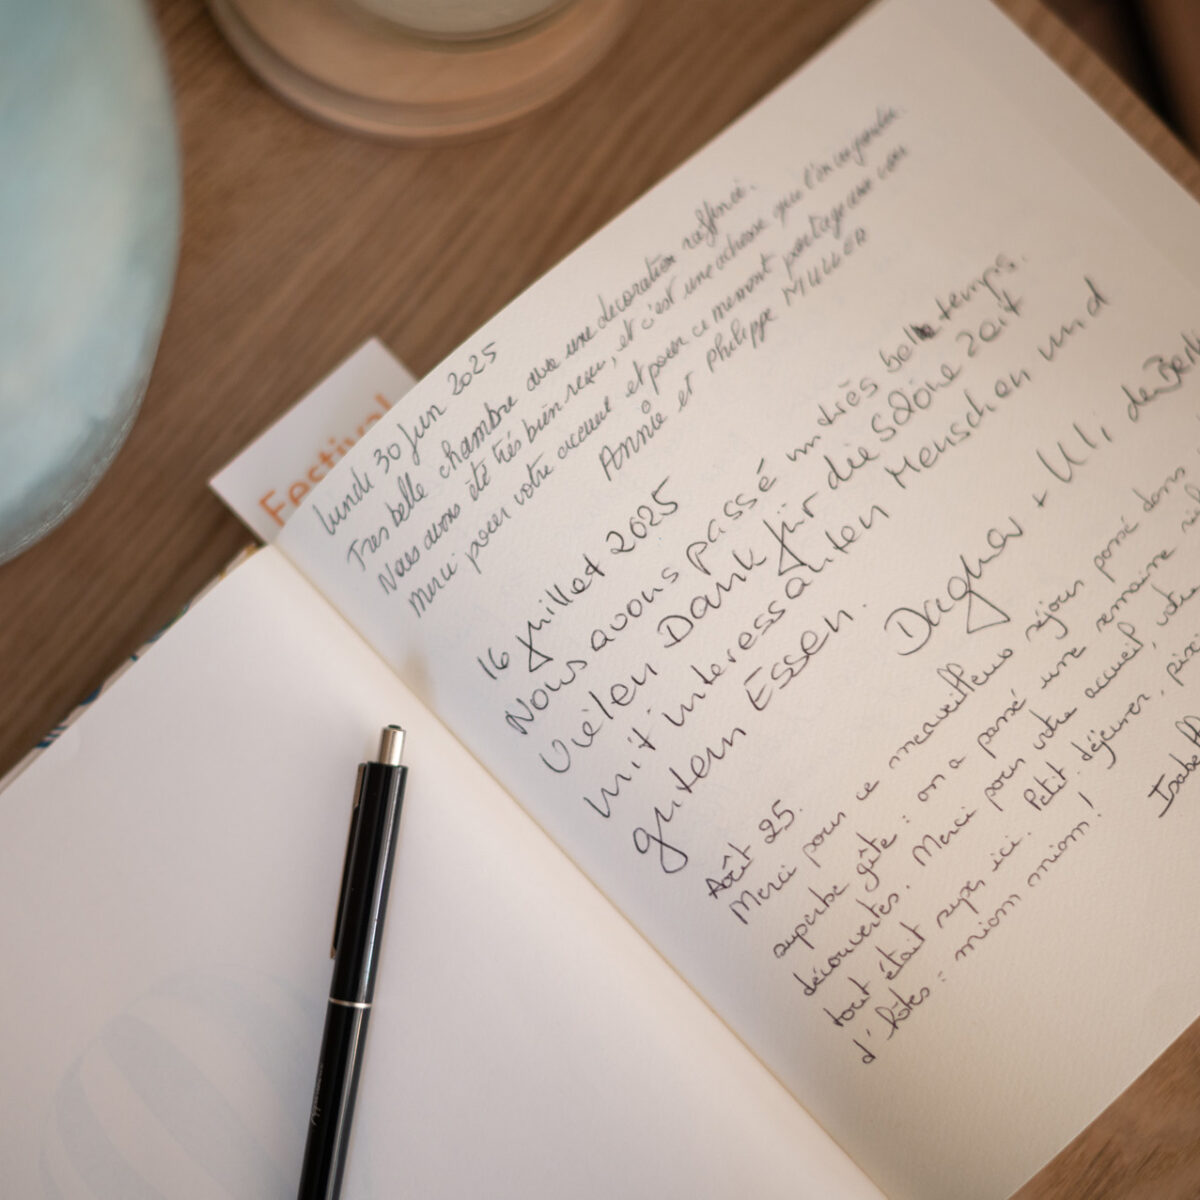 Festival
lundi 30 Juin 2025
Tres belle chambre avec une decoration raffinée.
Nous avons été très bien reçu, et c'est une adresse que l'on
Merci pour votre accueil et pour ce moment partagé avec
Annie et Philippe MULLER
16 Juillet 2025
Nous avons passé un très belle temps.
Vielen Dank für die schöne Zeit
mit interessanten Menschen und
gutem Essen.
Dagmar + Uli, de
Août 25.
Merci pour ce merveilleux séjour passé dans
superbe gîte : on a passé une semaine
découvertes. Merci pour votre accueil, votre
tout était super ici. Petit. déjeuner,
d'hôtes : miam miam miam !